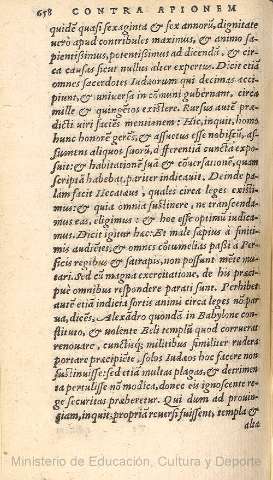 658 CONTRA APIONEM
quidẽ quasi sexaginta & sex annorũ, dignitate
uero apud contribules maximus, & animo sa-
pientissimus, potentissimus ad dicendũ, & cir-
ca causas sicut nullus alter expertus. Dicit etiã
omnes sacerdotes Iudæorum qui decimas acci-
piunt, & uniuersa in cõmuni gubernant, circa
mille & quingẽtos existere. Rursus autẽ præ-
dicti uiri faciẽs mentionem: Hic, inquit, homo
hunc honorẽ gerẽs, & assuetus esse nobiscũ, as-
sumens aliquos suorũ, differentiã cunctã expo-
suit: & habitationẽ suã & cõuersationẽ, quam
scriptã habebat, pariter indicauit. Deinde pa-
lam facit Hecatæus, quales circa leges existi-
mus: & quia omnia sustinere, ne transcenda-
mus eas, eligimus: & hoc esse optimũ iudica-
mus. Dicit igitur hæc: Et male sæpius à finiti-
mis audiẽtes, & omnes cõtumelias passi à Per-
sicis regibus & satrapis, non possunt mẽte mu-
tari. Sed cũ magna exercitatione, de his præci-
puè omnibus respondere parati sunt. Perhibet
autẽ etiã indicta fortis animi circa leges nõ par-
ua, dicẽs, Alexãdro quondã in Babylone con-
stituto, & uolente Beli templũ quod corruerat
renouare, cunctisq; militibus similiter rudera
portare præcipiẽte, solos Iudæos hoc facere non
sustinuisse: sed etiã multas plagas, & detrimen-
ta pertulisse nõ modica, donec eis ignoscente re-
ge securitas præberetur. Qui dum ad prouin-
tiam, inquit, propriã reuersi fuissent, templa &
alta
Ministerio de Educación, Cultura y Deporte